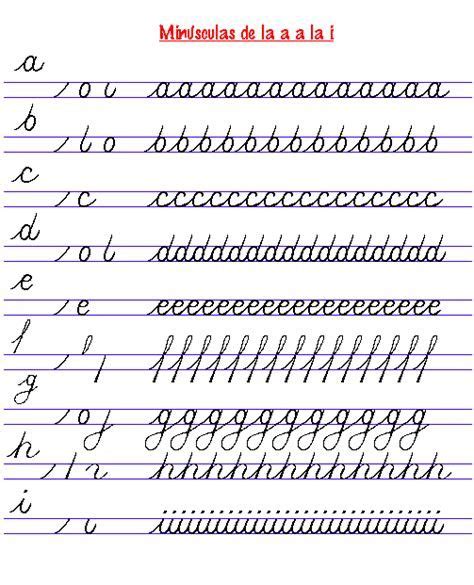 Minúsculas de la a a la i
a
aaaaaaaaaaaaaa
b
bbbbbbbbbbbbb
c
cccccccccccccccc
d
dddddddddddddddd
e
eeeeeeeeeeeeeeeeeee
f
ffffffffffffff
g
ggggggggggg
h
hhhhhhhhhhhhh
i
iiiiiiiiiiiiiiiiii